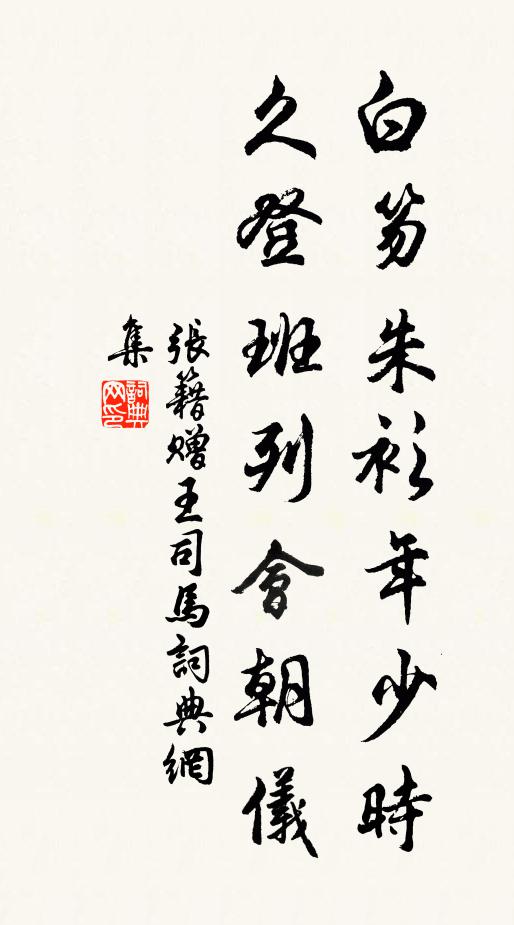 白笏朱衫年少時
久登班列會朝儀
張籍贈王司馬詞典網
集
詞典網印